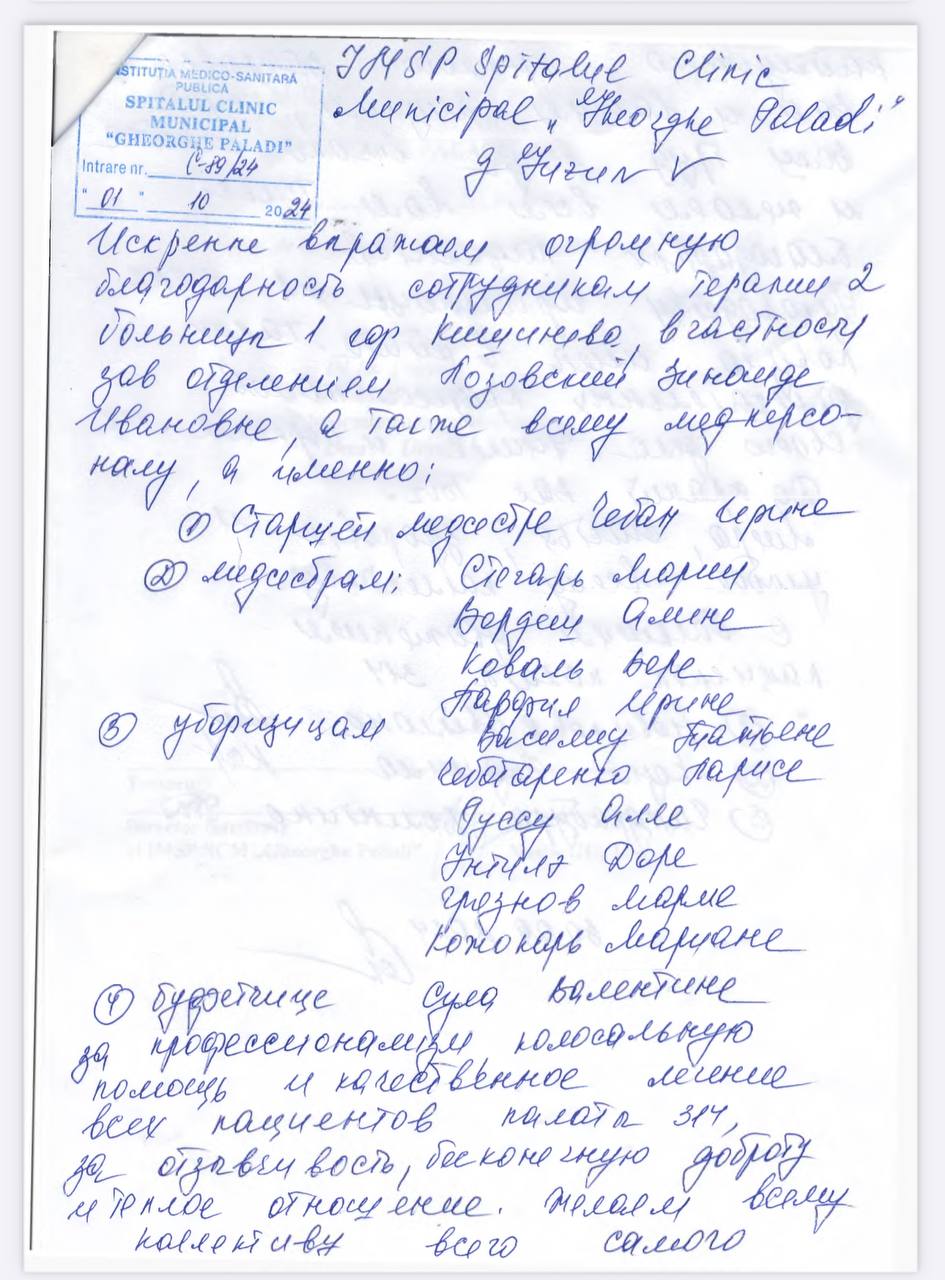 INSTITUȚIA MEDICO-SANITARĂ
PUBLICĂ
SPITALUL CLINIC
MUNICIPAL
"GHEORGHE PALADI"
Intrare nr. C-89/24
"01" 10 2024
IMSP Spitalul Clinic
Municipal „Gheorghe Paladi"
Искренне выражаем огромную
благодарность сотрудникам терапии 2
больницы 1 гор Кишинева, в частности
зав отделением Лозовский Зинаиде
Ивановне, а также всему медперсо-
налу, а именно:
① Старшей медсестре Чебан Ирине
② медсебрам: Стегарь Марии
Бордещ Алине
Коваль Вере
Парфия Ирине
③ уборщицам Василиу Татьяне
Чеботаренко Ларисе
Руссу Алле
Унтилэ Доре
Грезнов Марие
Кожокарь Мариане
④ буфетчице Сула Валентине
за профессионализм колосальную
помощь и качественное лечение
всех пациентов палаты 314,
за отзывчивость, бесконечную доброту
и теплое отношение. Желаем всему
коллективу всего самого